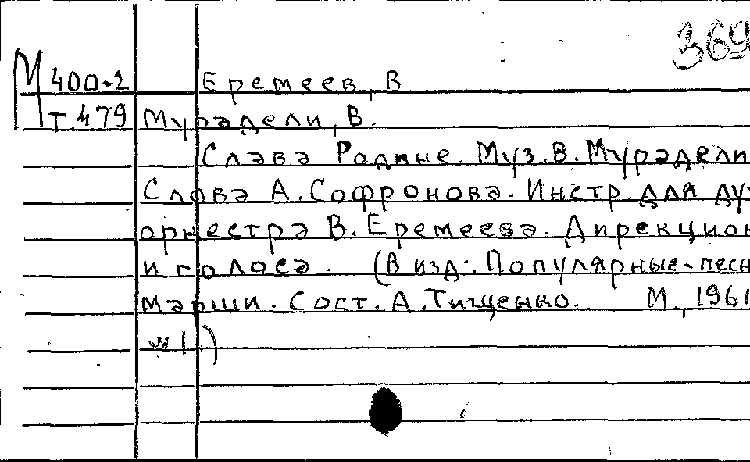 369
М 400-2 Еремеев, В
Т.479 Мурадели, В.
Слава Родине. Муз. В. Мурадели
Слова А. Софронова. Инстр. для ду
оркестра В. Еремеева. Дирекцион
и голоса. (В изд: Популярные песн
марши. Сост. А. Тищенко. М., 1961
)